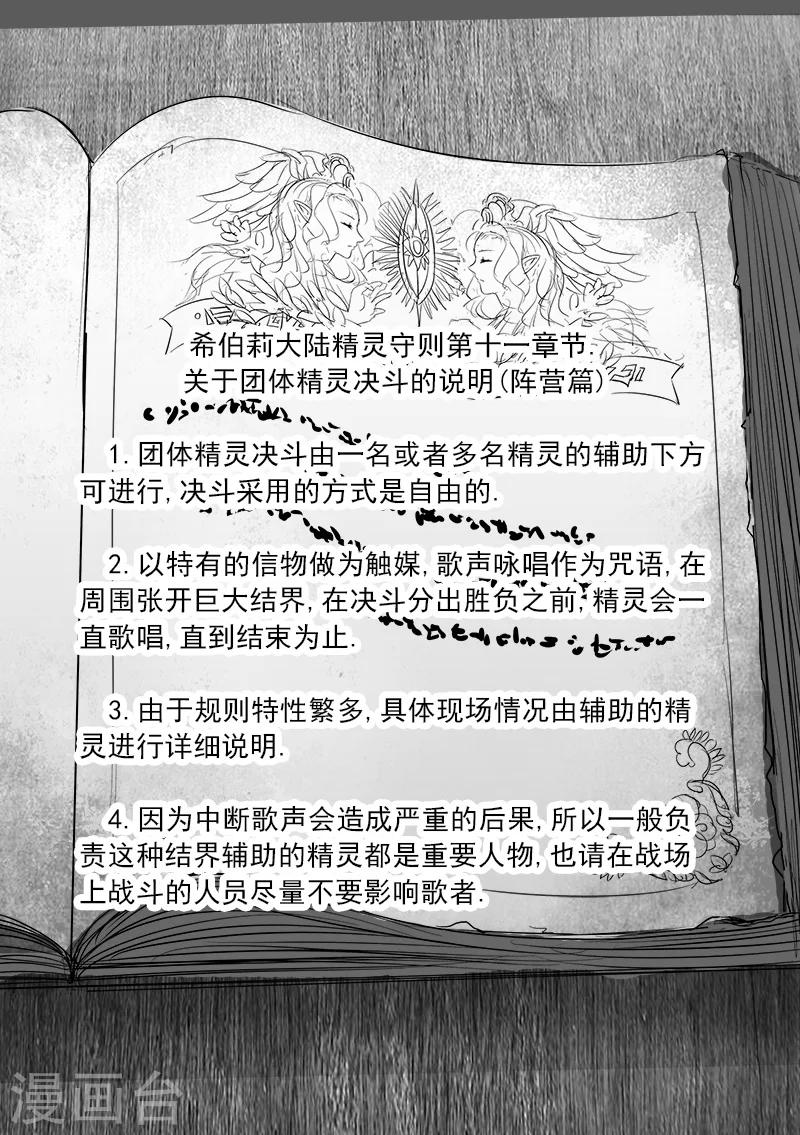 希伯莉大陆精灵守则第十一章节.
关于团体精灵决斗的说明(阵营篇)
1.团体精灵决斗由一名或者多名精灵的辅助下方
可进行,决斗采用的方式是自由的.
2.以特有的信物做为触媒,歌声咏唱作为咒语,在
周围张开巨大结界,在决斗分出胜负之前,精灵会一
直歌唱,直到结束为止.
3.由于规则特性繁多,具体现场情况由辅助的精
灵进行详细说明.
4.因为中断歌声会造成严重的后果,所以一般负
责这种结界辅助的精灵都是重要人物,也请在战场
上战斗的人员尽量不要影响歌者.
漫画台